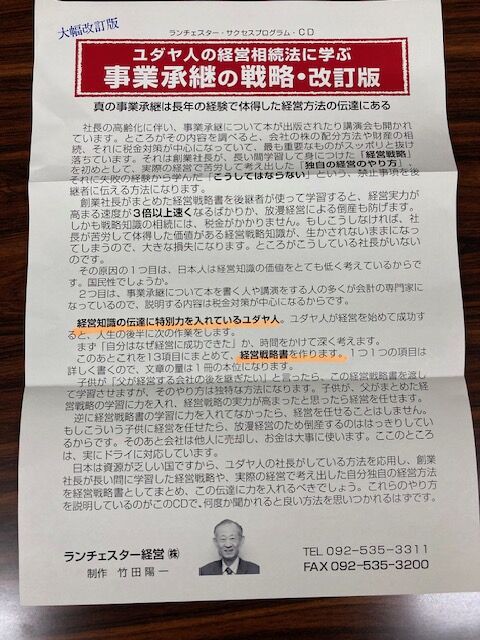 大幅改訂版
ランチェスター・サクセスプログラム・CD
ユダヤ人の経営相続法に学ぶ
事業承継の戦略・改訂版
真の事業承継は長年の経験で体得した経営方法の伝達にある
社長の高齢化に伴い、事業承継について本が出版されたり講演会も開かれ
ています。ところがその内容を調べると、会社の株の配分方法や財産の相
続、それに税金対策が中心になっていて、最も重要なものがスッポリと抜け
落ちています。それは創業社長が、長い間学習して身につけた「経営戦略」
を初めとして、実際の経営で苦労して考え出した「独自の経営のやり方」、
それに失敗の経験から学んだ「こうしてはならない」という、禁止事項を後
継者に伝える方法になります。
創業社長がまとめた経営戦略書を後継者が使って学習すると、経営実力が
高まる速度が3倍以上速くなるばかりか、放漫経営による倒産も防げます。
しかも戦略知識の相続には、税金がかかりません。もしこうしなければ、社
長が苦労して体得した価値がある経営戦略知識が、生かされないままになっ
てしまうので、大きな損失になります。ところがこうしている社長がいない
のです。
その原因の1つ目は、日本人は経営知識の価値をとても低く考えているからで
す。国民性でしょうか。
2つ目は、事業承継について本を書く人や講演をする人の多くが会計の専門家に
なっているので、説明する内容は税金対策が中心になるからです。
経営知識の伝達に特別力を入れているユダヤ人。ユダヤ人が経営を始めて成功す
ると、人生の後半に次の作業をします。
まず「自分はなぜ経営に成功できたか」か、時間をかけて深く考えます。
このあとこれを13項目にまとめて、経営戦略書を作ります。1つ1つの項目は
詳しく書くので、文章の量は1冊の本位になります。
子供が「父が経営する会社の後を継ぎたい」と言ったら、この経営戦略書を渡し
て学習させますが、そのやり方は独特な方法になります。子供が、父がまとめた経
営戦略の学習に力を入れ、経営戦略の実力が高まったと思ったら経営を任せます。
逆に経営戦略書の学習に力を入れてなかったら、経営を任せることはしません。
もしこういう子供に経営を任せたら、放漫経営のため倒産するのははっきりしてい
るからです。そのあと会社は他人に売却し、お金は大事に使います。ここのところ
は、実にドライに対応しています。
日本は資源が乏しい国ですから、ユダヤ人の社長がしている方法を応用し、創業
社長が長い間に学習した経営戦略や、実際の経営で考え出した自分独自の経営方法
を経営戦略書としてまとめ、この伝達に力を入れるべきでしょう。これらのやり方
を説明しているのがこのCDで、何度か聞かれると良い方法を思いつかれるはずです。
ランチェスター経営㈱
制作 竹田陽一
TEL 092-535-3311
FAX 092-535-3200